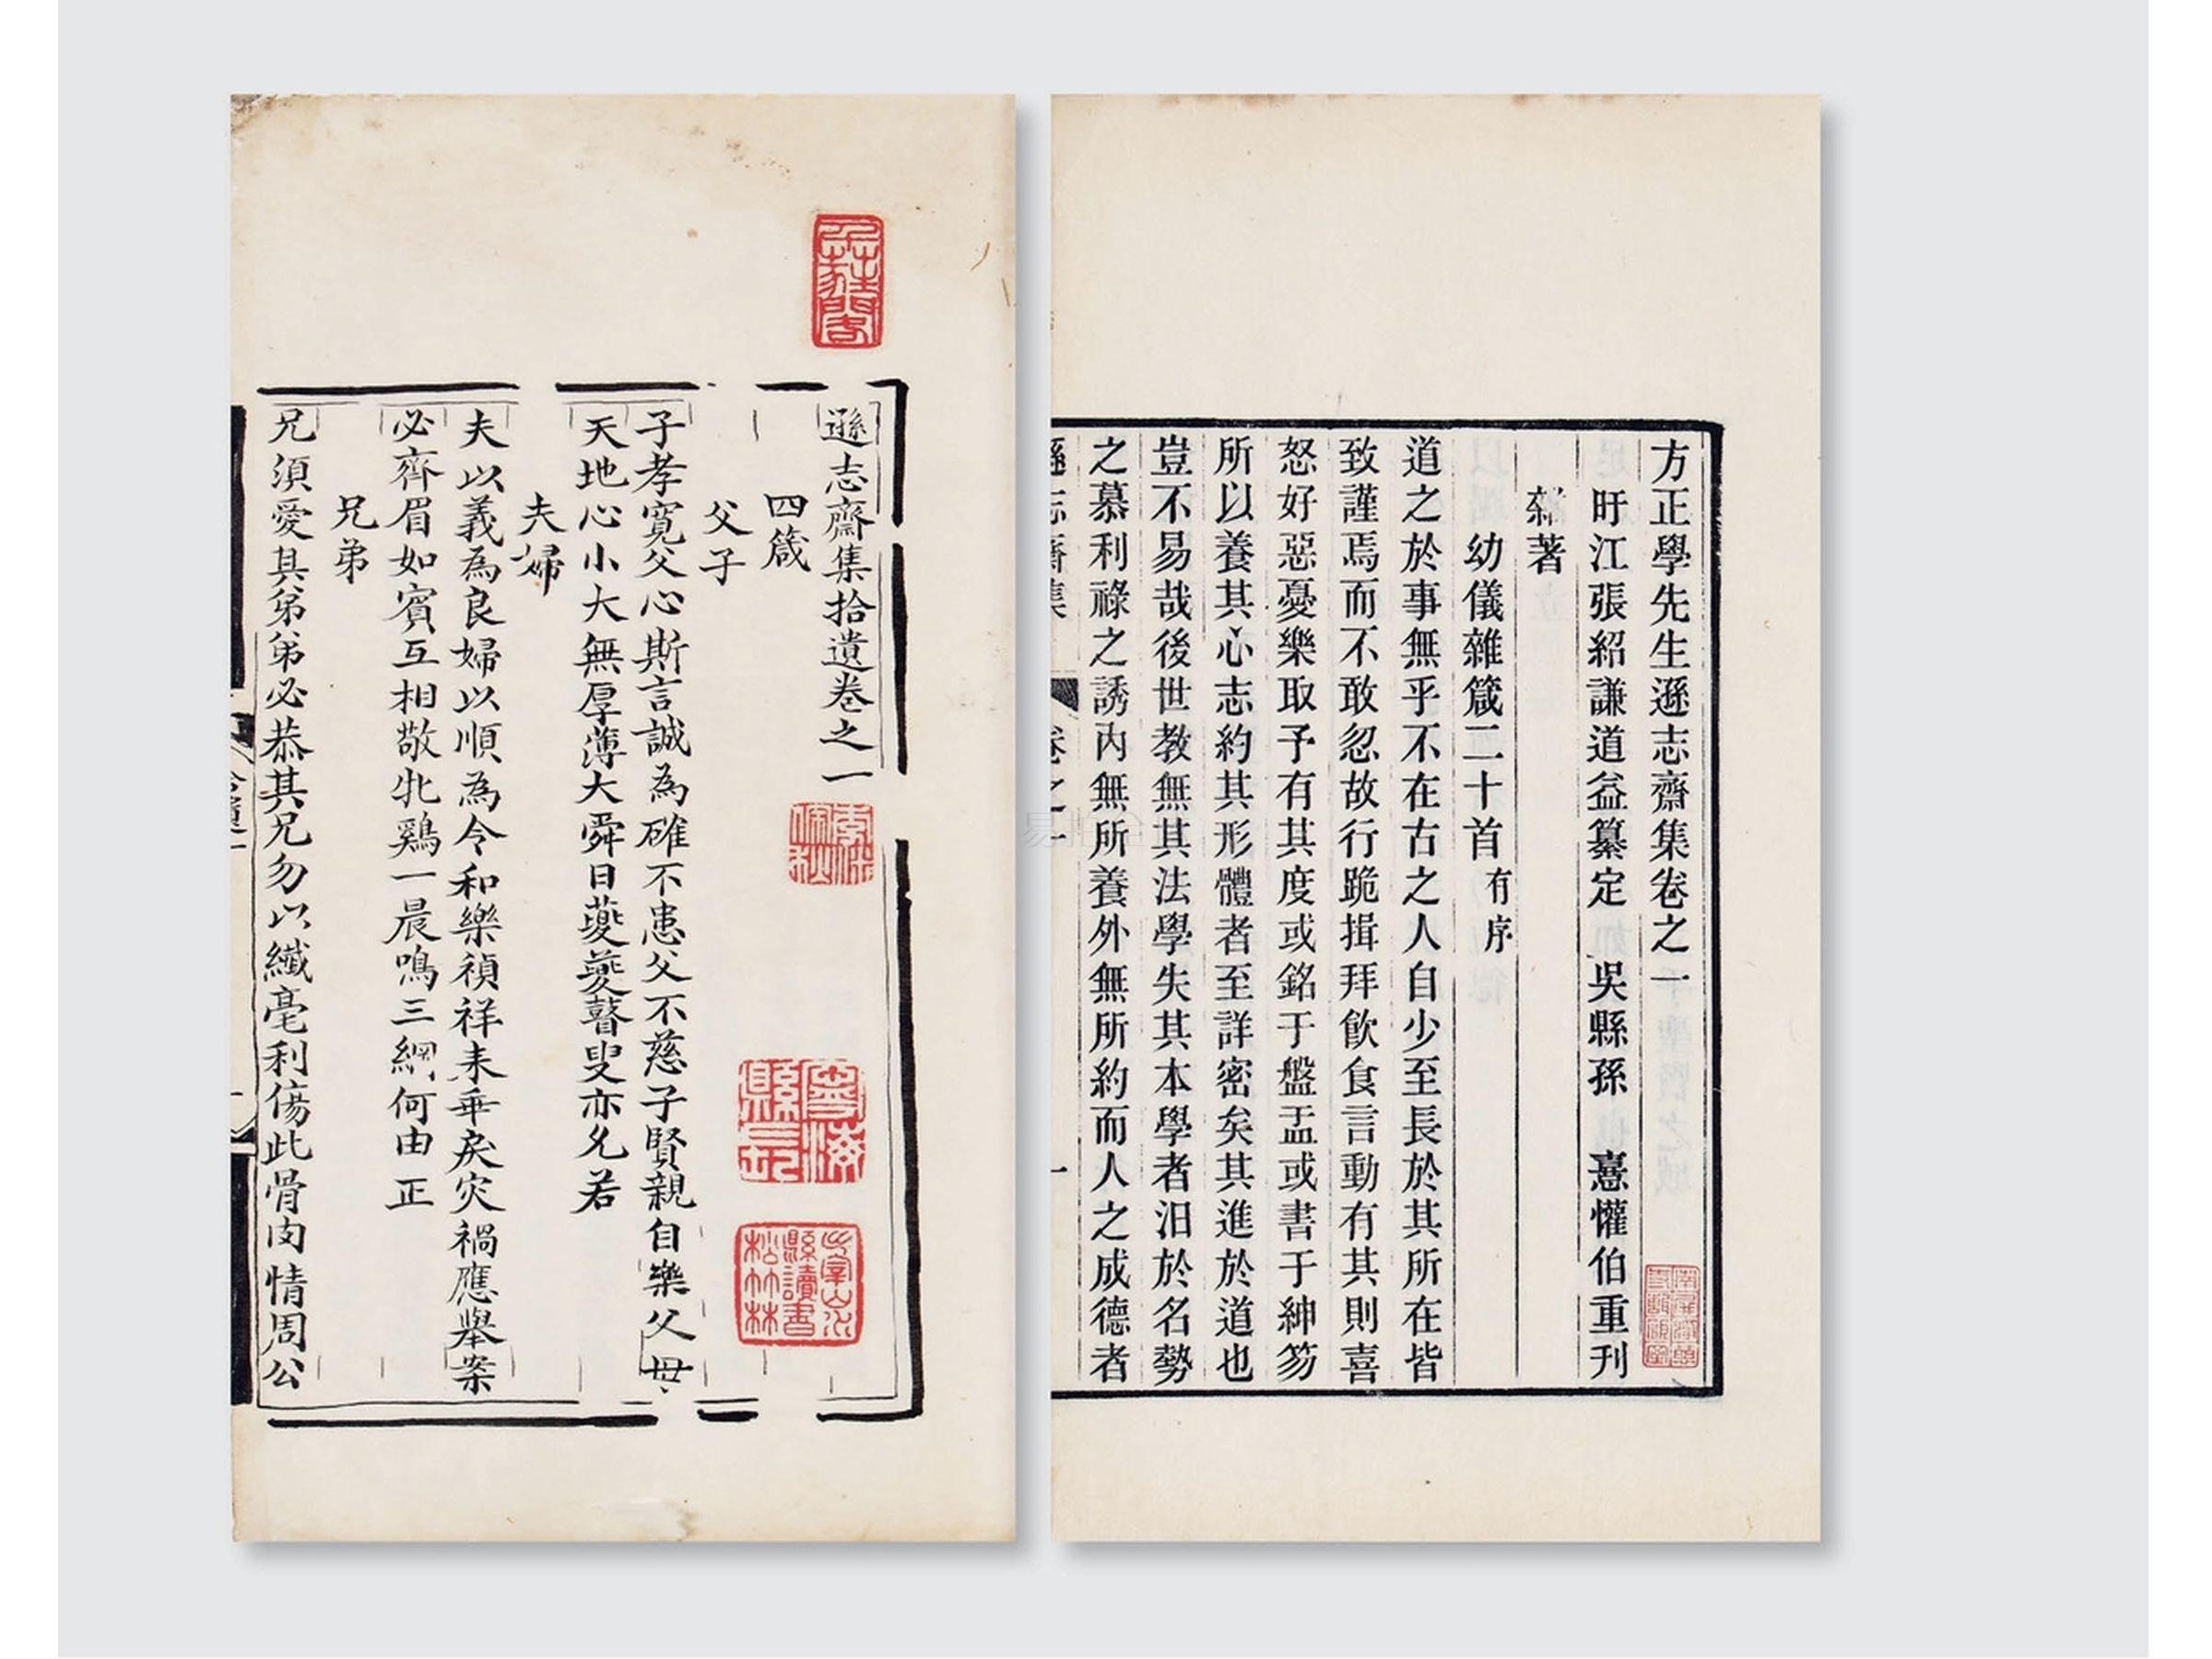 方正學先生遜志齋集卷之一
盱江張紹謙道益纂定 吳縣孫 憙懽伯重刊
雜著
幼儀雜箴二十首 有序
道之於事無乎不在古之人自少至長於其所在皆
致謹焉而不敢忽故行跪揖拜飲食言動有其則喜
怒好惡憂樂取予有其度或銘于盤盂或書于紳笏
所以養其心志約其形體者至詳密矣其進於道也
豈不易哉後世教無其法學失其本學者汩於名勢
之慕利祿之誘內無所養外無所約而人之成德者
遜志齋集 卷之一 一
遜志齋集拾遺卷之一
四箴
父子
子孝寬父心斯言誠為確不患父不慈子賢親自樂父母
天地心小大無厚薄大舜日夔夔瞽叟亦允若
夫婦
夫以義為良婦以順為令和樂禎祥来乖戾灾禍應舉案
必齊眉如賓互相敬牝鷄一晨鳴三綱何由正
兄弟
兄須愛其弟弟必恭其兄勿以纖毫利傷此骨肉情周公
粵海
縣長
松竹林
縣讀書